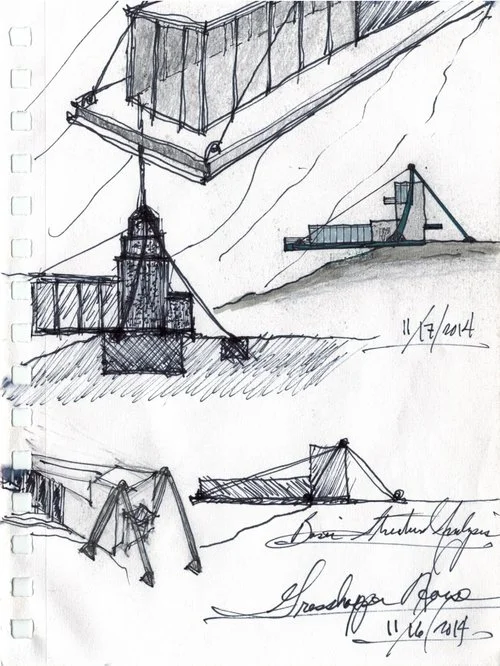 11/17/2014
Basic Structural Analysis
Grasshopper
11/16/2014